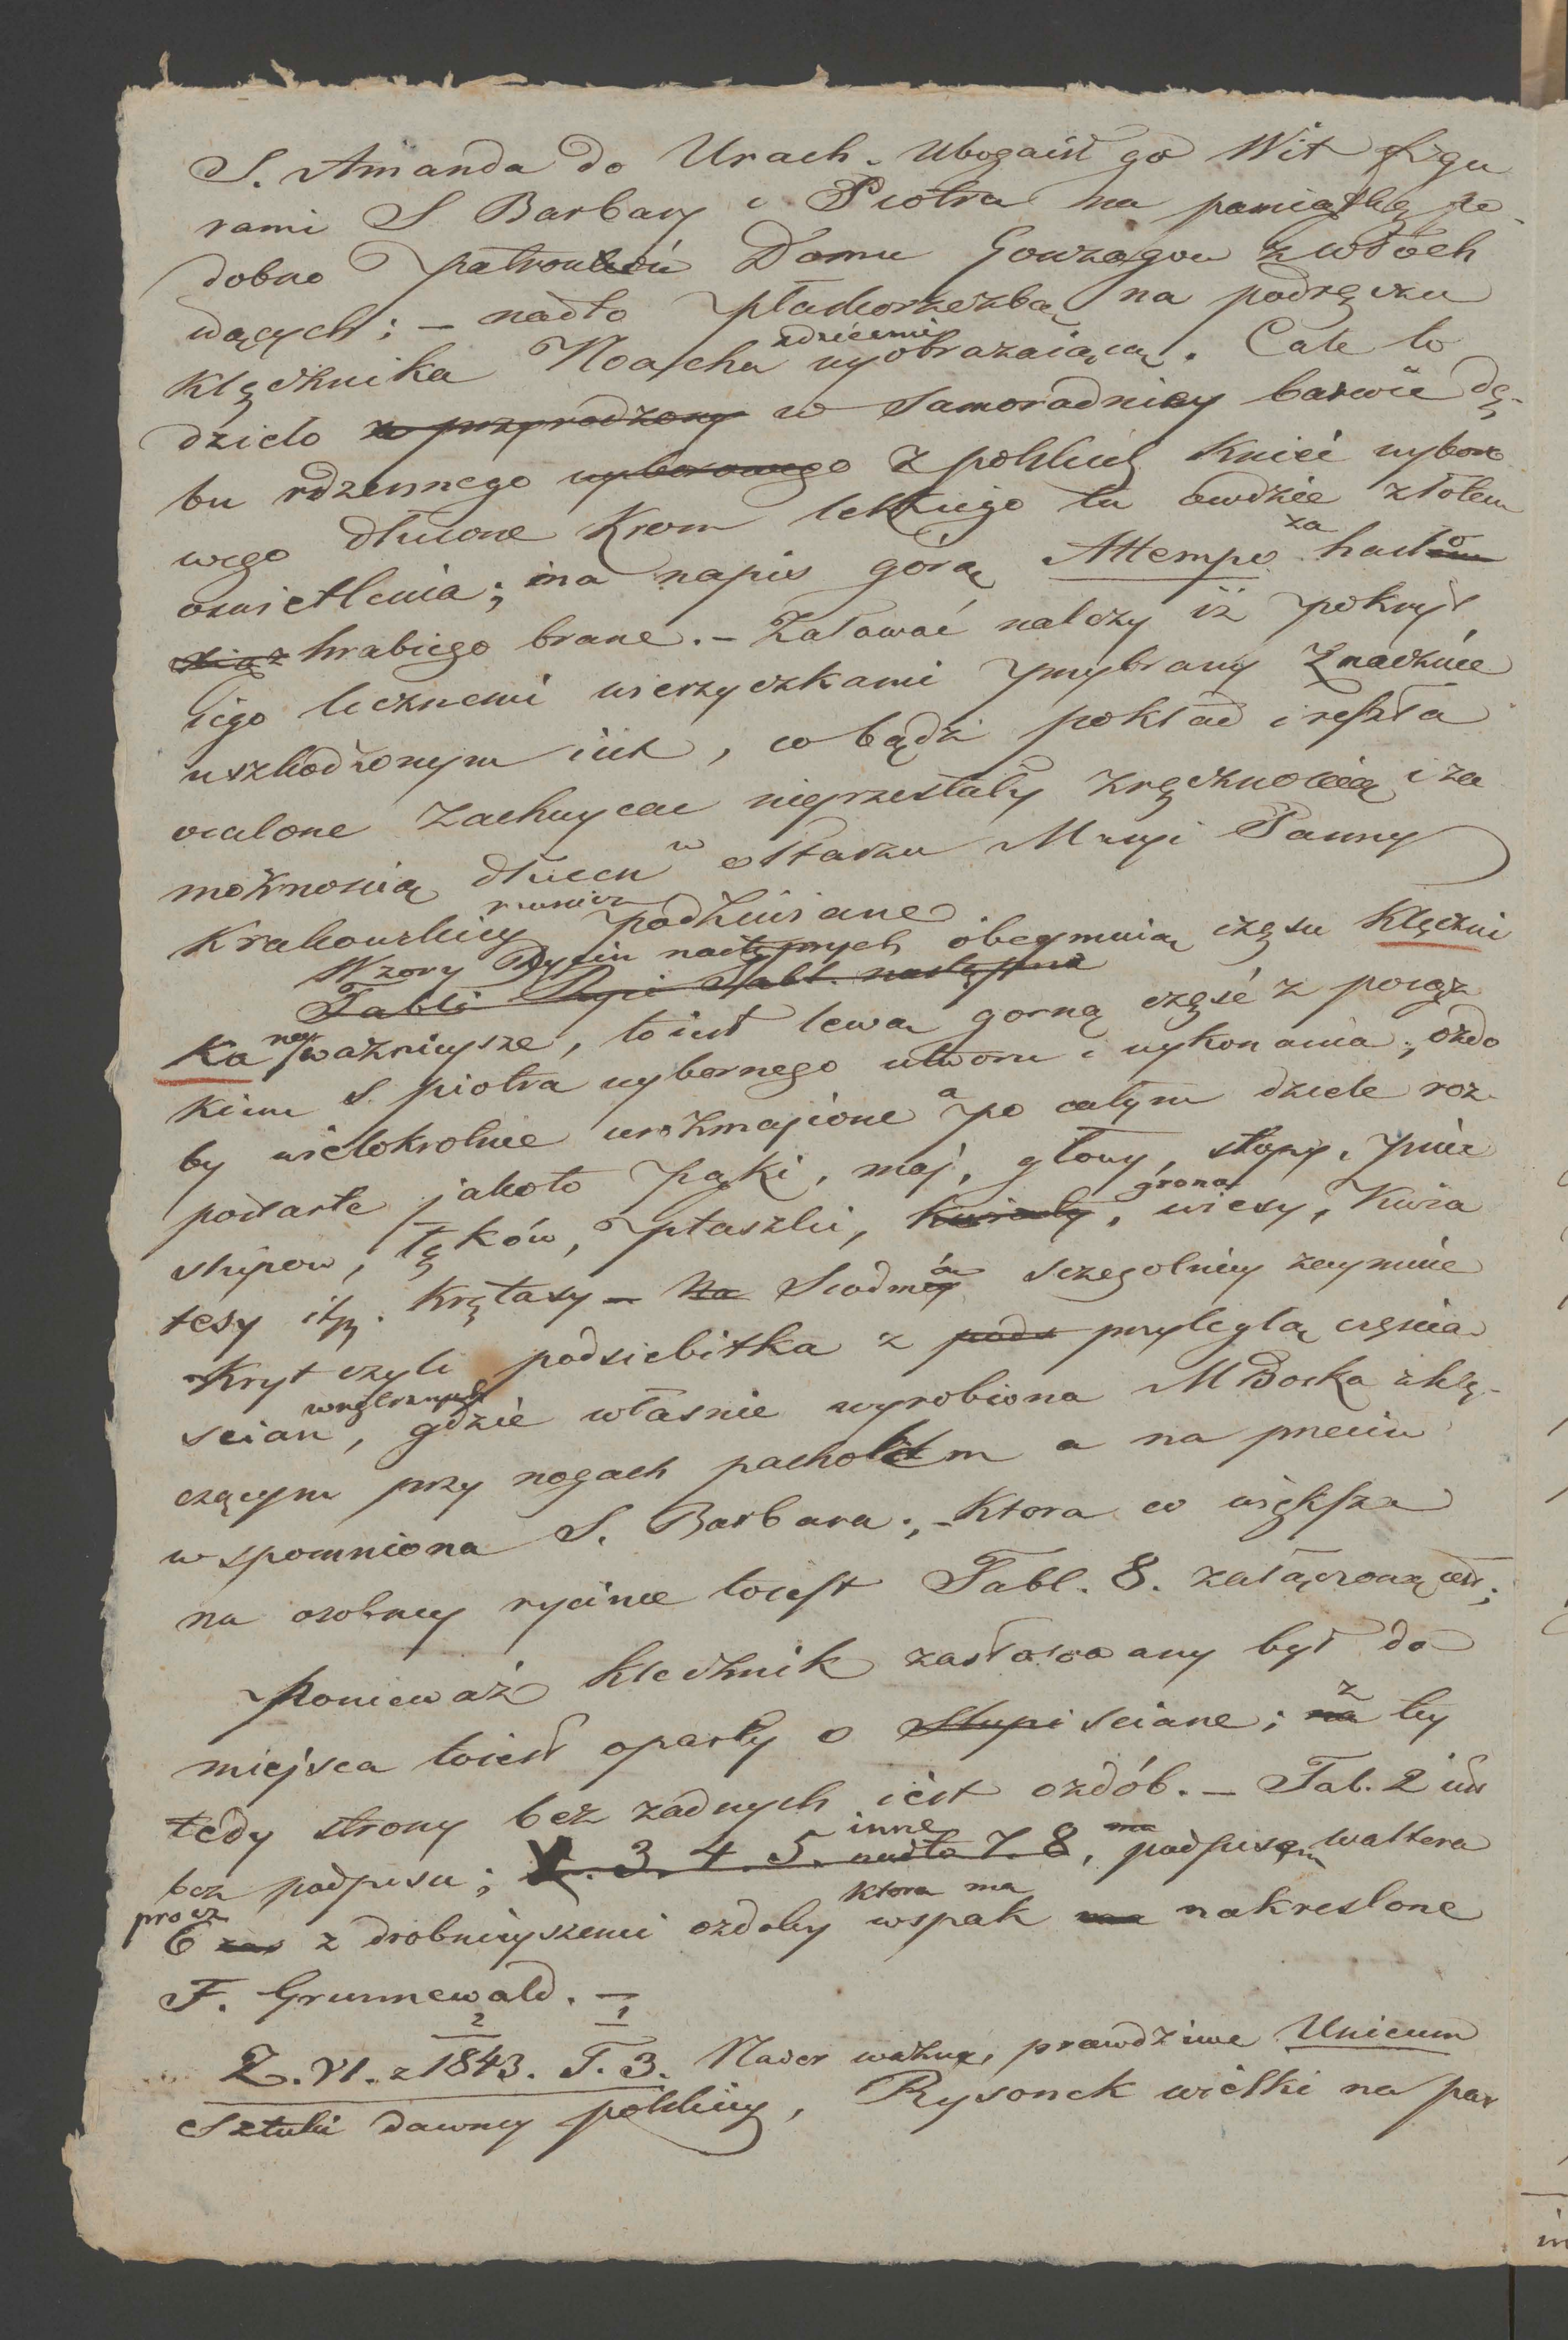 S. Amanda do Urach. Ubogaił go Wit figu
rami S Barbary i Piotra na pamiątkę po-
dobno patronów Domu Gonzagów z włoch
idących; – nadto płaskorzeźbą na podręczu
klęcznika Noacha zdziećmi wyobrażaiącą. Całe to
dzieło w przyrodzony w samorodniey barwie dę-
bu rdzennego wyborowego z polskiej kniei wyboro
wego dłutione krom lekkiego tu owdzie złotem
oswietlenia; ma napis górą Attempo za hasło
hrabiego brane. – Żałować należy iż pokryt
iego licznemi wierzyczkami przybrany znacznie
uszkodzonym iest, co bądź pokład i reszta
ocalone zachwycać nieprzestały zręcznoscią i za
możnoscią dłuta w ołtarzu Maryi Panny
Krakowskiey podziwiane
Wzory Rycin następnych obeymuią częsci Klęczni
Tabli Ryci Tabl. następne
ka nayważnieysze, to iest lewa gorną część z posąż
kiem S. piotra wybornego utworu i wykonania; ozdo
by wielokrotnie urozmaicone a po całym dziele roz-
postarte jakoto pąki, maj, głowy, stopy, pnie
słupow, sęków, ptaszki, kwiaty, grona, wiesy, Kwia
tesy itp. krętasy – Na Siodmą szczegolniey zaymuie
Kryt czyli podsiebitka z pods przyległą częscia
scian wnętrznych, gdzie własnie wyrobiona M Boska z klę-
czącym przy nogach pacholem a na przeciw
wspomniona S. Barbara; – ktora co większa
na osobney rycinie toiest Tabl. 8. załączoną iest;
Ponieważ klecznik zastosowany był do
miejsca toiest oparty o Słupi sciane; na z tey
tedy strony bez żadnych iest ozdób. – Tab. 2 iest
bez podpisu; 3. 4. 5. nadto 7. 8, inne ma podpisem Waltera
procz 6 zas z drobnieyszemi ozdoby ktora ma wspak ma nakreslone
F. Grunnewald. –
Z. VI. z 1843. T. 3. Nader ważne, prawdziwe Unicum
Sztuki dawney polskiey, Rysonek wielki na par